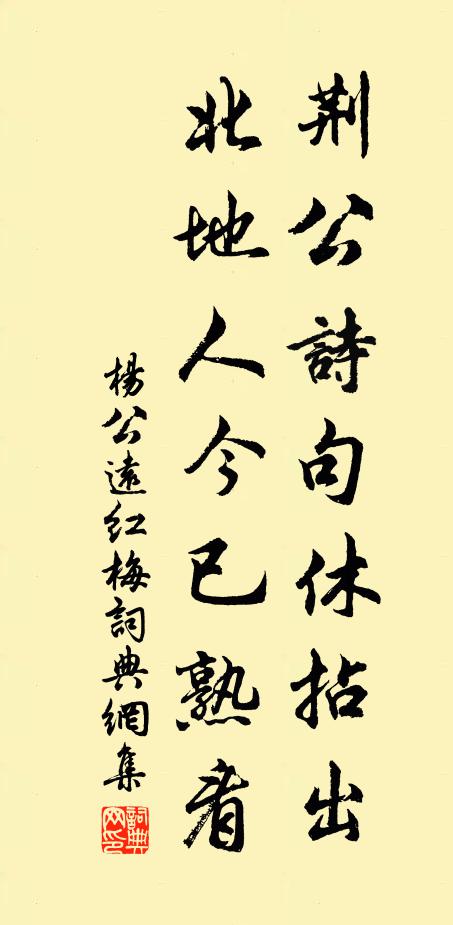 荆公詩句休拈出
北地人今已熟看
楊公遠紅梅詞典網集
詞典网印